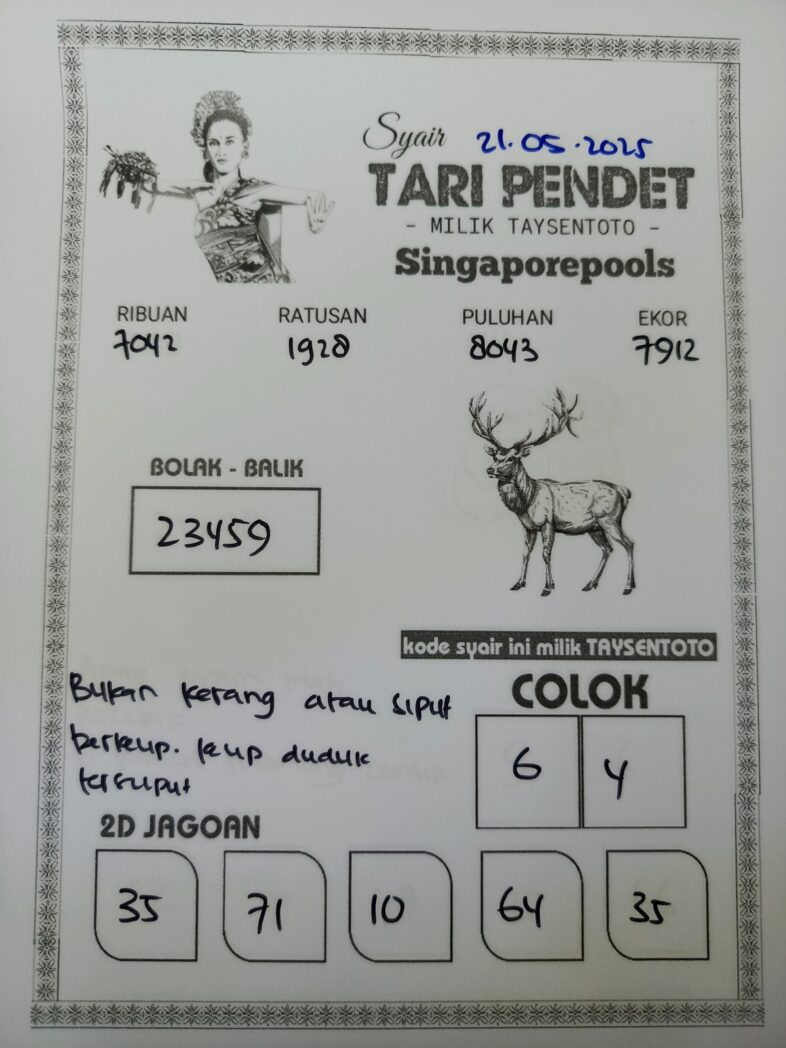 Syair 21.05.2025
TARI PENDET
- MILIK TAYSENTOTO -
Singaporepools
RIBUAN RATUSAN PULUHAN EKOR
7042 1928 8043 7912
BOLAK - BALIK
23459
kode syair ini milik TAYSENTOTO
Bukan kerang atau siput
berkup. kup duduk
tersuput
COLOK
6 4
2D JAGOAN
35 71 10 64 35